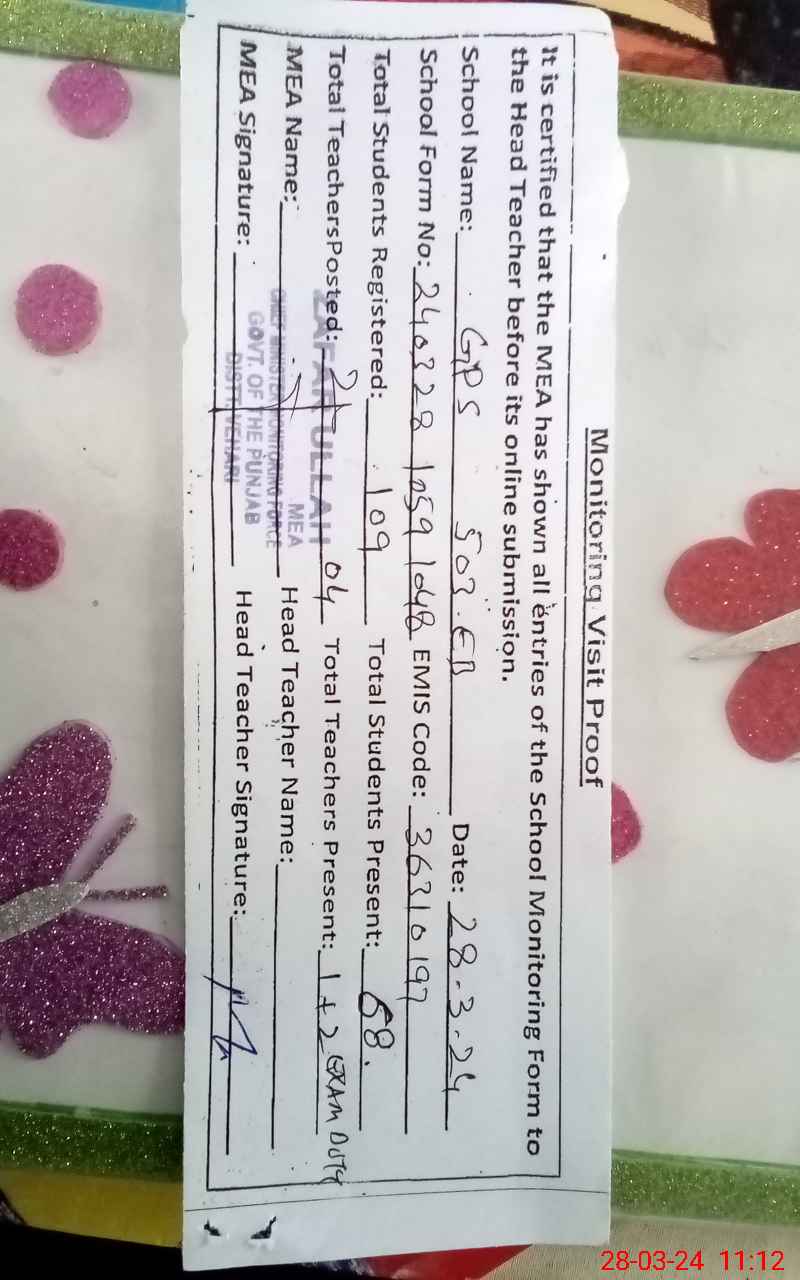 Monitoring Visit Proof
It is certified that the MEA has shown all entries of the School Monitoring Form to
the Head Teacher before its online submission.
School Name: GPS 503.EB Date: 28.3.24
School Form No: 240328 1059 1048 EMIS Code: 36310197
Total Students Registered: 109 Total Students Present: 68.
Total TeachersPosted: 04 Total Teachers Present: 1+2 EXAM DUTY
ZAFAR ULLAH
MEA Name: MEA Head Teacher Name:
CHIEF MINISTER MONITORING FORCE
MEA Signature: GOVT. OF THE PUNJAB Head Teacher Signature:
DISTT. VEHARI
28-03-24 11:12